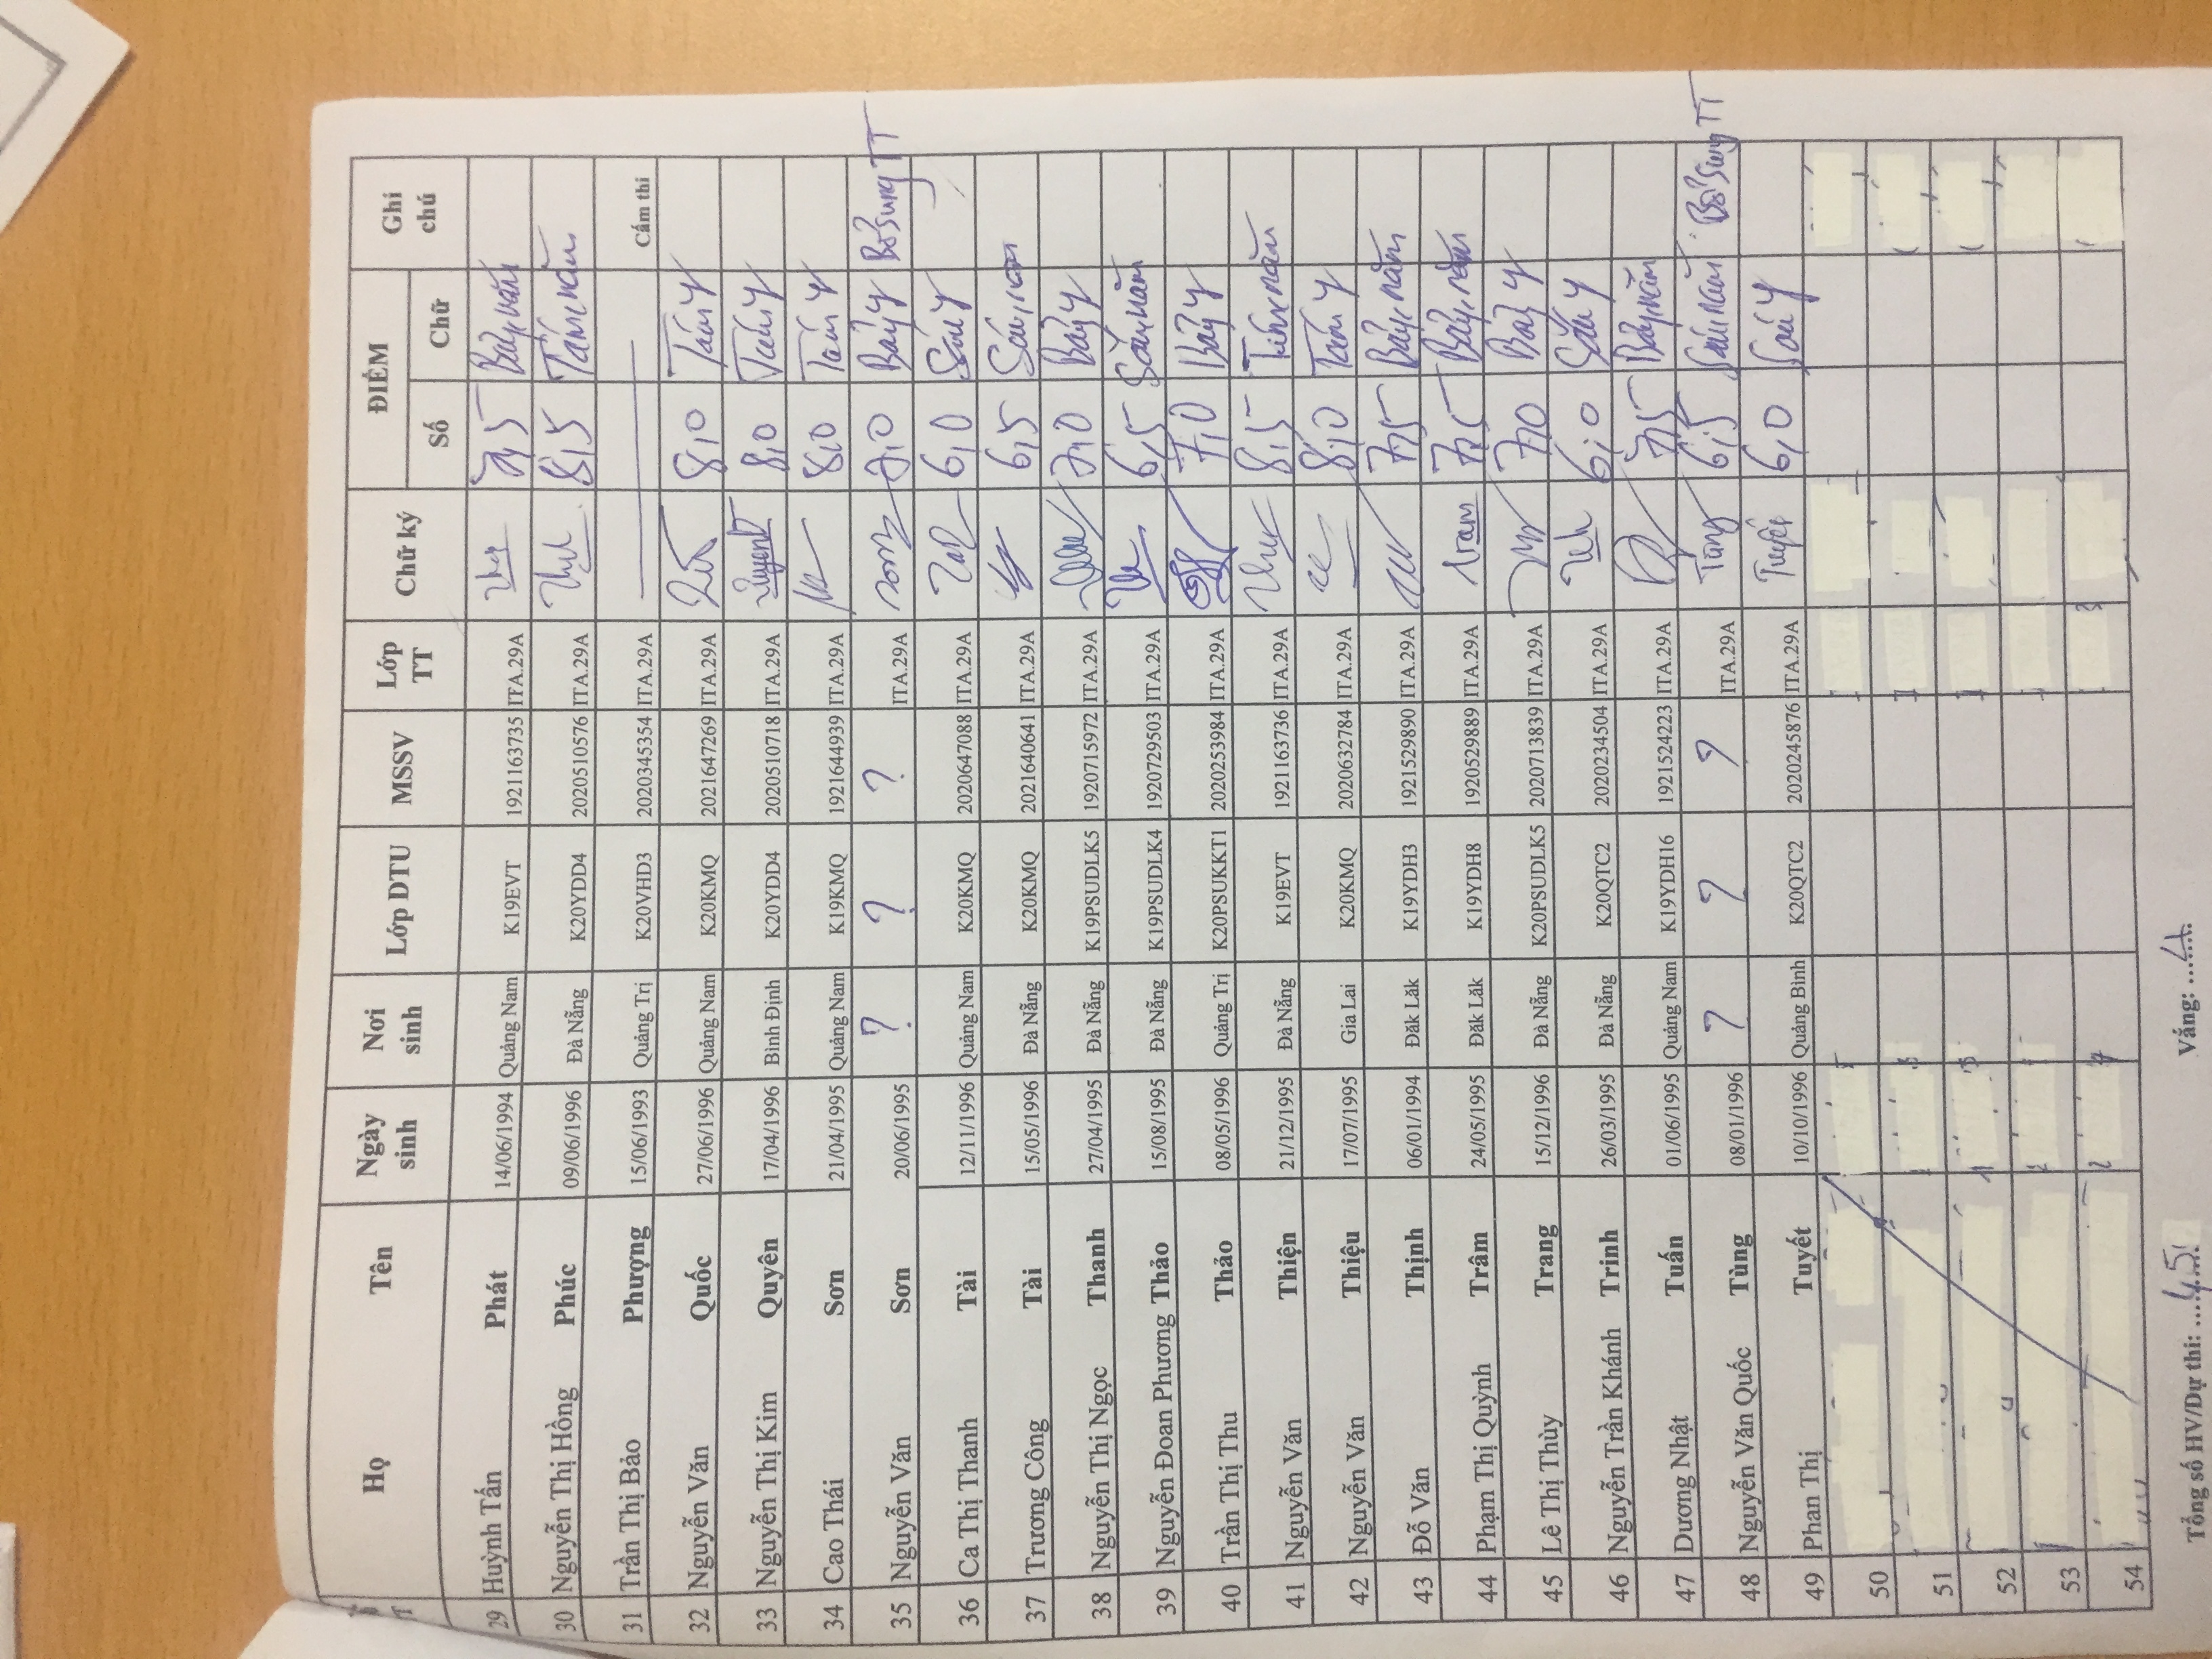 Họ Tên Ngày sinh Nơi sinh Lớp DTU MSSV Lớp TT Chữ ký ĐIỂM Ghi chú
Số Chữ
29 Huỳnh Tấn Phát 14/06/1994 Quảng Nam K19EVT 1921163735 ITA.29A 7,5 Bảy,năm
30 Nguyễn Thị Hồng Phúc 09/06/1996 Đà Nẵng K20YDD4 2020510576 ITA.29A 8,5 Tám,năm
31 Trần Thị Bảo Phượng 15/06/1993 Quảng Trị K20VHD3 2020345354 ITA.29A Cấm thi
32 Nguyễn Văn Quốc 27/06/1996 Quảng Nam K20KMQ 2021647269 ITA.29A 8,0 Tám y
33 Nguyễn Thị Kim Quyên 17/04/1996 Bình Định K20YDD4 2020510718 ITA.29A 8,0 Tám y
34 Cao Thái Sơn 21/04/1995 Quảng Nam K19KMQ 1921644939 ITA.29A 8,0 Tám y
35 Nguyễn Văn Sơn 20/06/1995 ? ? ? ITA.29A 7,0 Bảy y Bổ sung TT
36 Ca Thị Thanh Tài 12/11/1996 Quảng Nam K20KMQ 2020647088 ITA.29A 6,0 Sáu y
37 Trương Công Tài 15/05/1996 Đà Nẵng K20KMQ 2021640641 ITA.29A 6,5 Sáu,năm
38 Nguyễn Thị Ngọc Thanh 27/04/1995 Đà Nẵng K19PSUDLK5 1920715972 ITA.29A 7,0 Bảy y
39 Nguyễn Đoan Phương Thảo 15/08/1995 Đà Nẵng K19PSUDLK4 1920729503 ITA.29A 6,5 Sáu,năm
40 Trần Thị Thu Thảo 08/05/1996 Quảng Trị K20PSUKKT1 2020253984 ITA.29A 7,0 Bảy y
41 Nguyễn Văn Thiện 21/12/1995 Đà Nẵng K19EVT 1921163736 ITA.29A 8,5 Tám,năm
42 Nguyễn Văn Thiệu 17/07/1995 Gia Lai K20KMQ 2020632784 ITA.29A 8,0 Tám y
43 Đỗ Văn Thịnh 06/01/1994 Đăk Lăk K19YDH3 1921529890 ITA.29A 7,5 Bảy,năm
44 Phạm Thị Quỳnh Trâm 24/05/1995 Đăk Lăk K19YDH8 1920529889 ITA.29A Tram 7,5 Bảy,năm
45 Lê Thị Thùy Trang 15/12/1996 Đà Nẵng K20PSUDLK5 2020713839 ITA.29A 7,0 Bảy y
46 Nguyễn Trần Khánh Trinh 26/03/1995 Đà Nẵng K20QTC2 2020234504 ITA.29A 6,0 Sáu y
47 Dương Nhật Tuấn 01/06/1995 Quảng Nam K19YDH16 1921524223 ITA.29A 7,5 Bảy,năm
48 Nguyễn Văn Quốc Tùng 08/01/1996 ? ? ? ITA.29A Tùng 6,5 Sáu,năm Bổ sung TT
49 Phan Thị Tuyết 10/10/1996 Quảng Bình K20QTC2 2020245876 ITA.29A Tuyết 6,0 Sáu y
50
51
52
53
54
Tổng số HV/Dự thi: 45 Vắng: 4